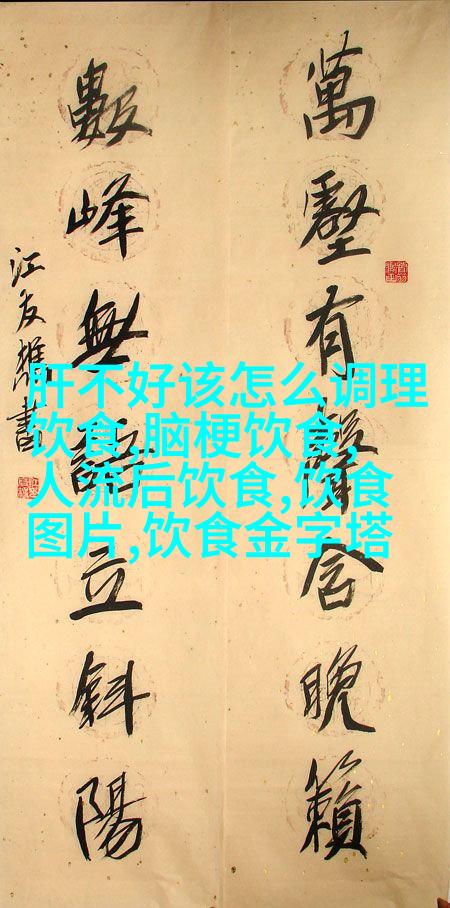 萬壑有聲含晚籟
數峰無語立斜陽
江友樵書
肝不好该怎么调理
饮食,脑梗饮食,
人流后饮食,饮食
图片,饮食金字塔